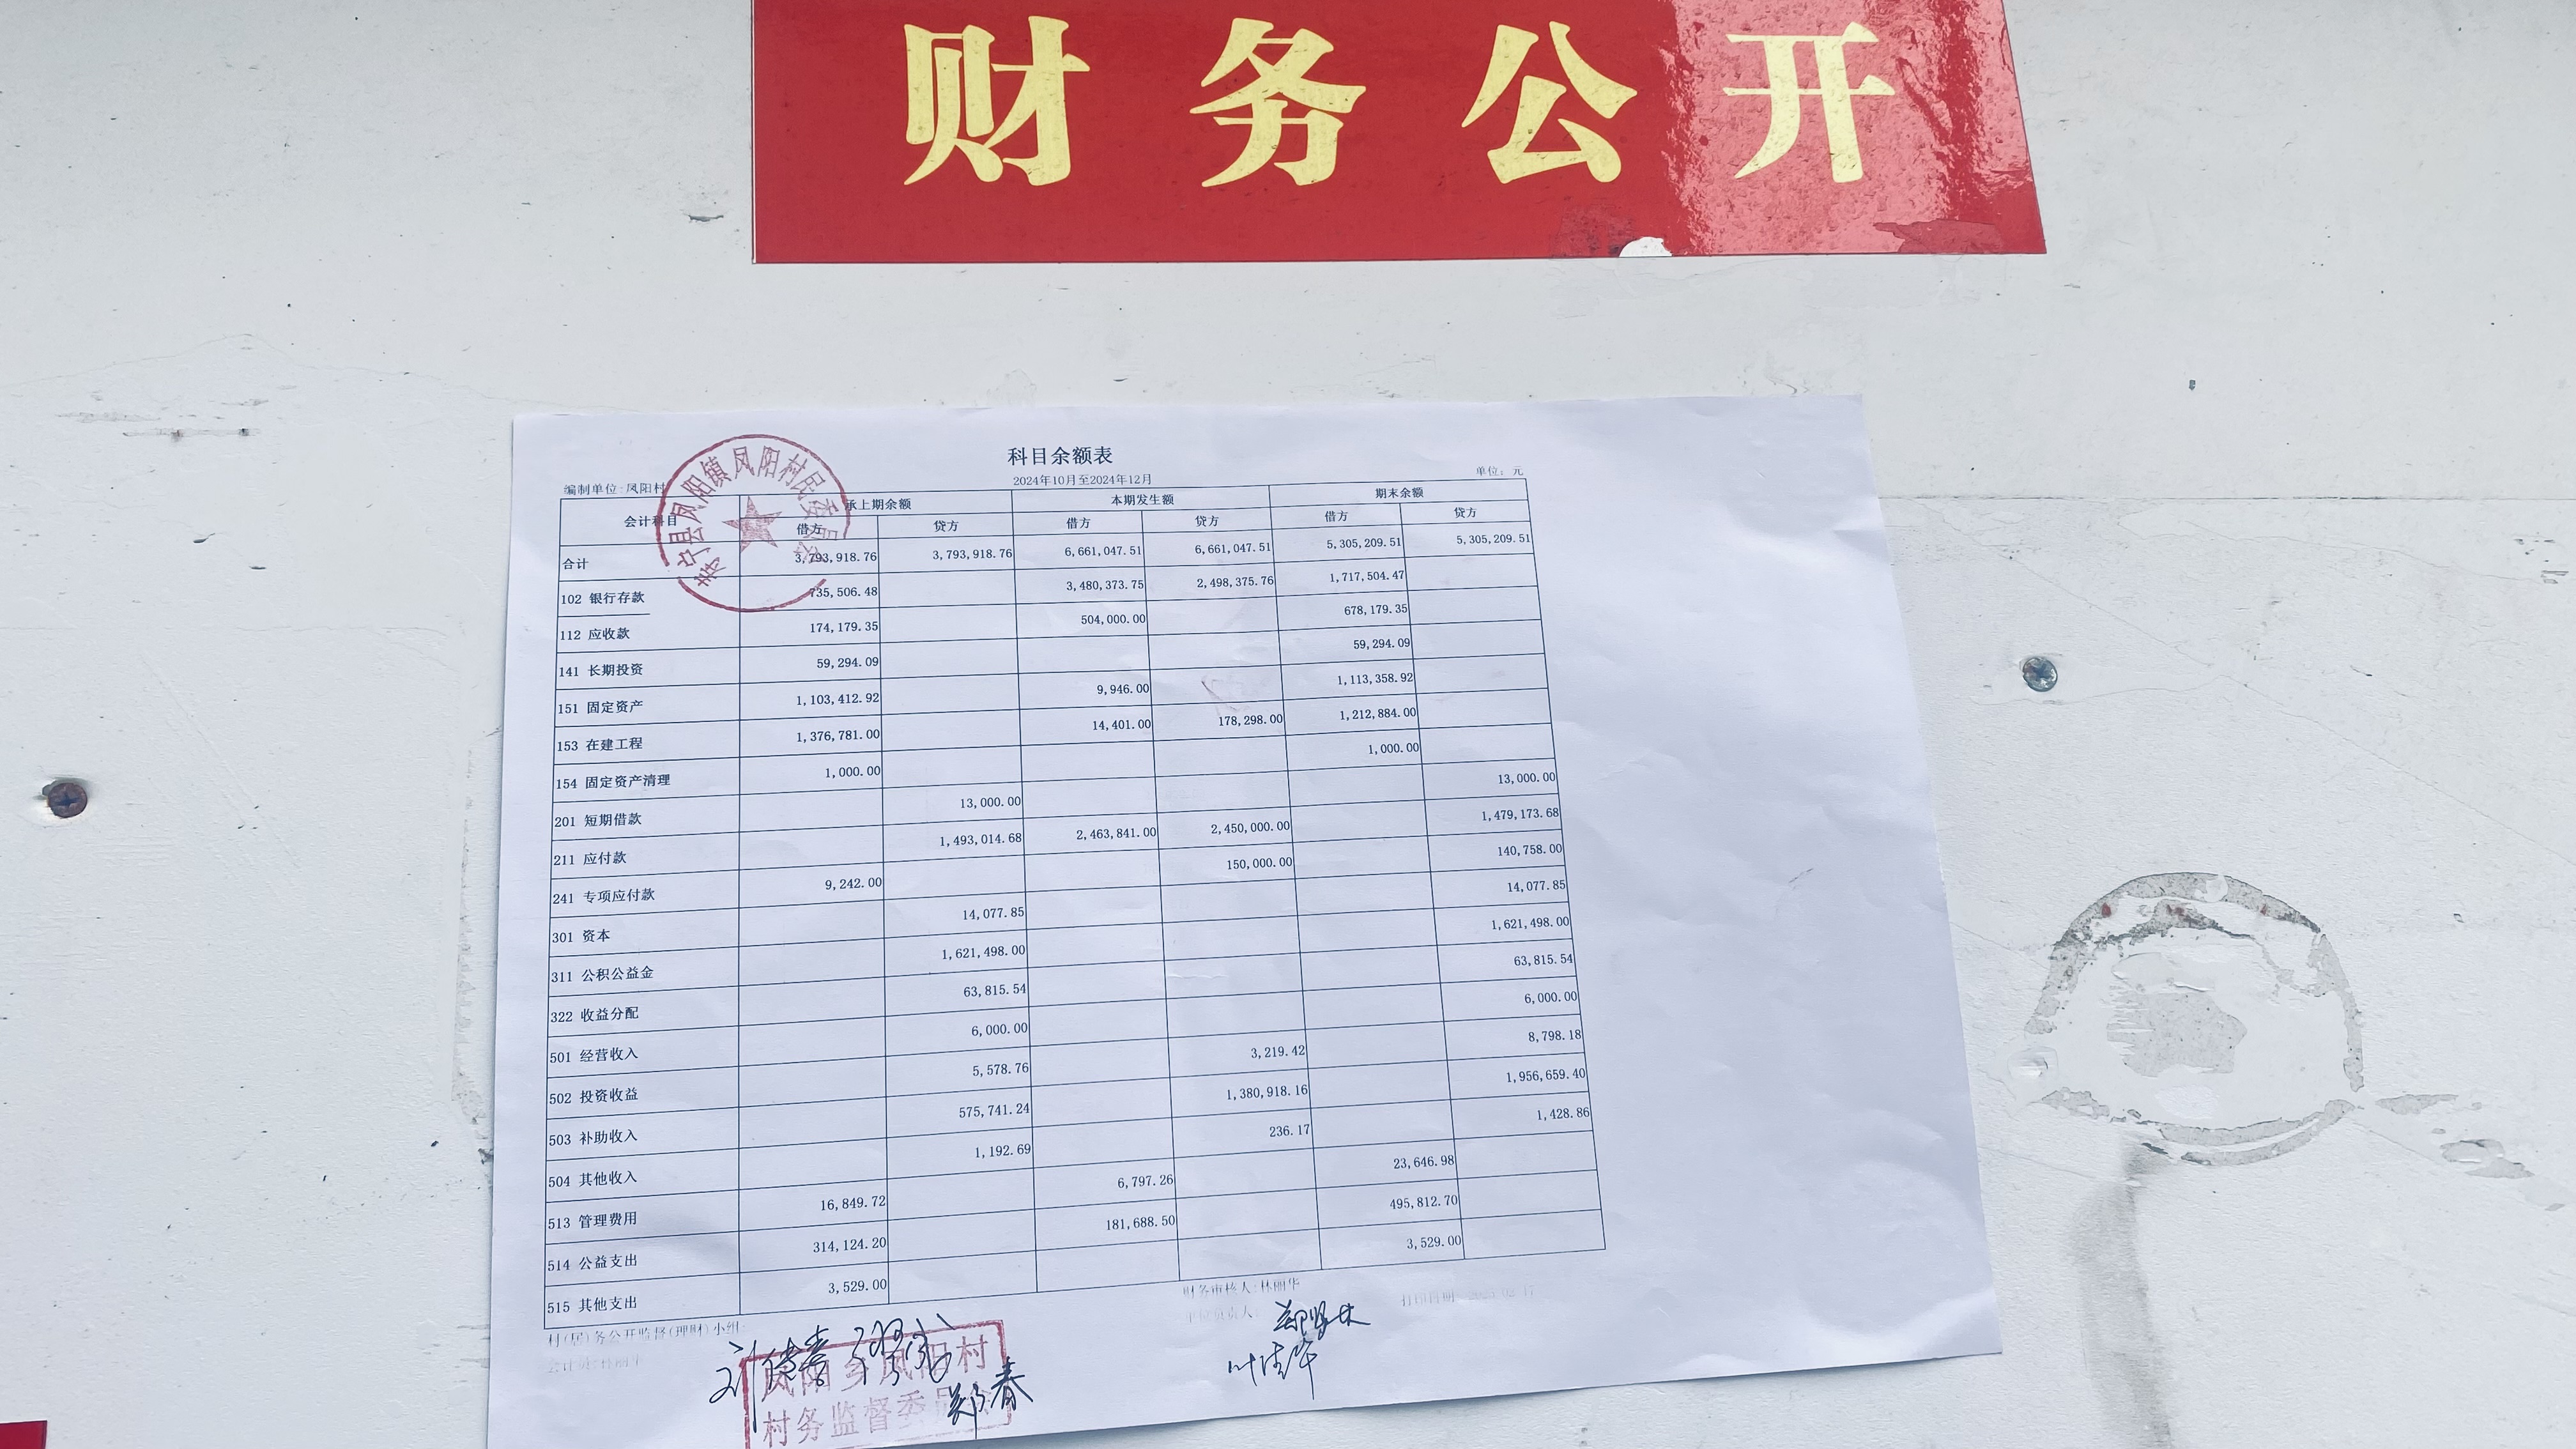 财务公开
寿宁县凤阳镇凤阳村民委员会
科目余额表
2024年10月至2024年12月
编制单位:凤阳村 单位:元
会计科目 承上期余额 本期发生额 期末余额
借方 贷方 借方 贷方 借方 贷方
合计 3,793,918.76 3,793,918.76 6,661,047.51 6,661,047.51 5,305,209.51 5,305,209.51
102 银行存款 735,506.48 3,480,373.75 2,498,375.76 1,717,504.47
112 应收款 174,179.35 504,000.00 678,179.35
141 长期投资 59,294.09 59,294.09
151 固定资产 1,103,412.92 9,946.00 1,113,358.92
153 在建工程 1,376,781.00 14,401.00 178,298.00 1,212,884.00
154 固定资产清理 1,000.00 1,000.00
201 短期借款 13,000.00 13,000.00
211 应付款 1,493,014.68 2,463,841.00 2,450,000.00 1,479,173.68
241 专项应付款 9,242.00 150,000.00 140,758.00
301 资本 14,077.85 14,077.85
311 公积公益金 1,621,498.00 1,621,498.00
322 收益分配 63,815.54 63,815.54
501 经营收入 6,000.00 6,000.00
502 投资收益 5,578.76 3,219.42 8,798.18
503 补助收入 575,741.24 1,380,918.16 1,956,659.40
504 其他收入 1,192.69 236.17 1,428.86
513 管理费用 16,849.72 6,797.26 23,646.98
514 公益支出 314,124.20 181,688.50 495,812.70
515 其他支出 3,529.00 3,529.00
村(居)务公开监督(理财)小组: 财务审核人:林丽华
会计员:林丽华 单位负责人: 打印日期:
凤阳乡凤阳村
村务监督委员会